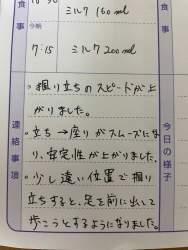 食事
ミルク 160 ml
今朝
7:15 ミルク 200 ml
食事
連絡事項
・掴り立ちのスピードが上
がりました。
・立ち→座りがスムーズにな
り、安定性が上がりました。
・少し遠い位置で掴り
立ちすると、足を前に出して
歩こうとするようになりました。
今日の様子